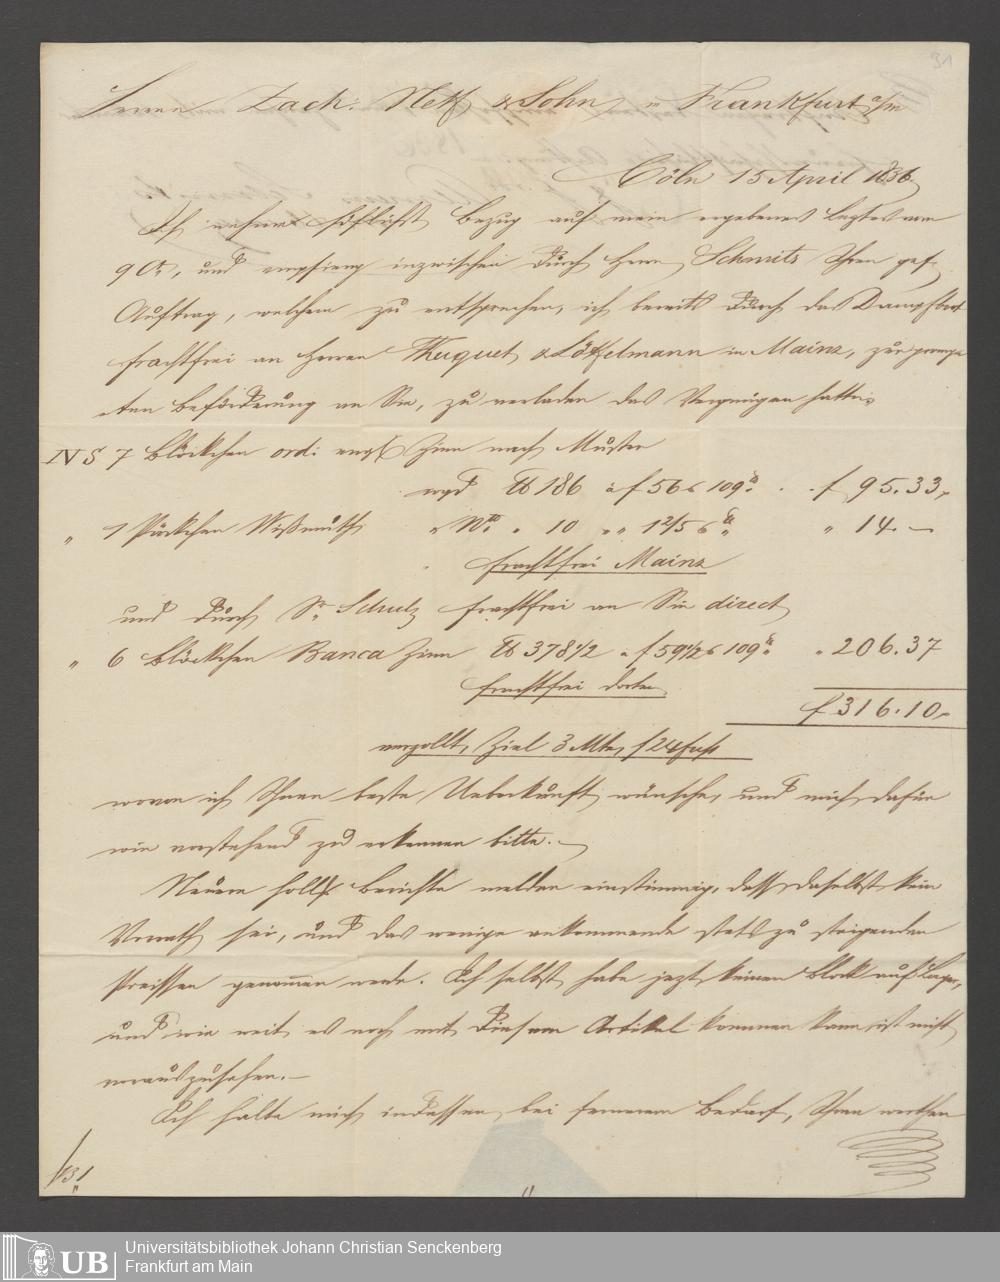 31
Herren Zach: Nett & Sohn, in Frankfurt a/m
Cöln 15 April 1836
Ich nehme höflichst Bezug auf mein ergebenes Leztes vom
9 Ct, und empfieng inzwischen durch Herrn Schmits Ihren gef.
Auftrag, welchem zu entsprechen, ich bereits durch das Dampfboot
frachtfrei an Herren Thuquet & Löffelmann in Mainz, zur promp
ten Beförderung an Sie, zu verladen das Vergnügen hatte:
N S 7 Blöckchen ord: engl Zinn nach Muster
wgd ℔ 186 à f 56 109 f 95.33
„ 1 Päckchen Wißmuth „ No „ 10 „ „ 1 2/5 „ 14. —
frachtfrei Mainz
und durch Sr. Schulz frachtfrei an Sie direct
„ 6 Blöckchen Banca Zinn ℔ 378 1/2 f 59 1/2 109 „ 206.37
frachtfrei dorten
f 316.10
verzollt, Ziel 3 Mte, f 24 fuß
wovon ich Ihnen beste Ueberkunft wünsche, und mich dafür
wie vorstehend zu erkennen bitte.—
Neuere holl Berichte melden einstimmig, dass daselbst kein
Vorrath sei, und das wenige ankommende stets zu steigenden
Preissen genommen werde. Ich selbst habe jezt keinen Block auf Lager,
und wie weit es noch mit diesem Artikel kommen kann, ist nicht
vorauszusehen.—
Ich halte mich indessen bei fernerem Bedarf, Ihren werthen
Universitätsbibliothek Johann Christian Senckenberg
Frankfurt am Main
UB